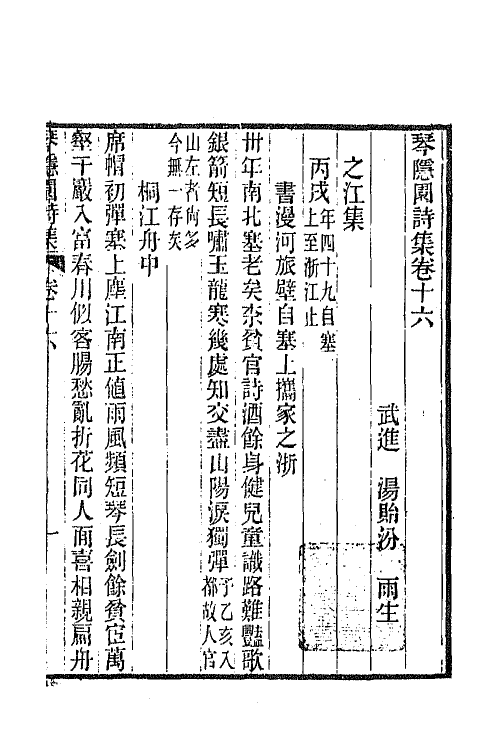 琴隱園詩集卷十六
武進 湯貽汾 雨生
之江集
丙戌年四十九自塞上至浙江止
書漫河旅壁自塞上攜家之浙
卅年南北塞老矣柰貧官詩酒餘身健兒童識路難豔歌
銀箭短長嘯玉龍寒幾處知交盡山陽淚獨彈予乙亥入都故人官
山左者尚多今無一存矣
桐江舟中
席帽初彈塞上塵江南正値雨風頻短琴長劍餘貧宦萬
壑千巖入富春川似客腸愁亂折花同人面喜相親扁舟
琴隱園詩集 卷十六 一